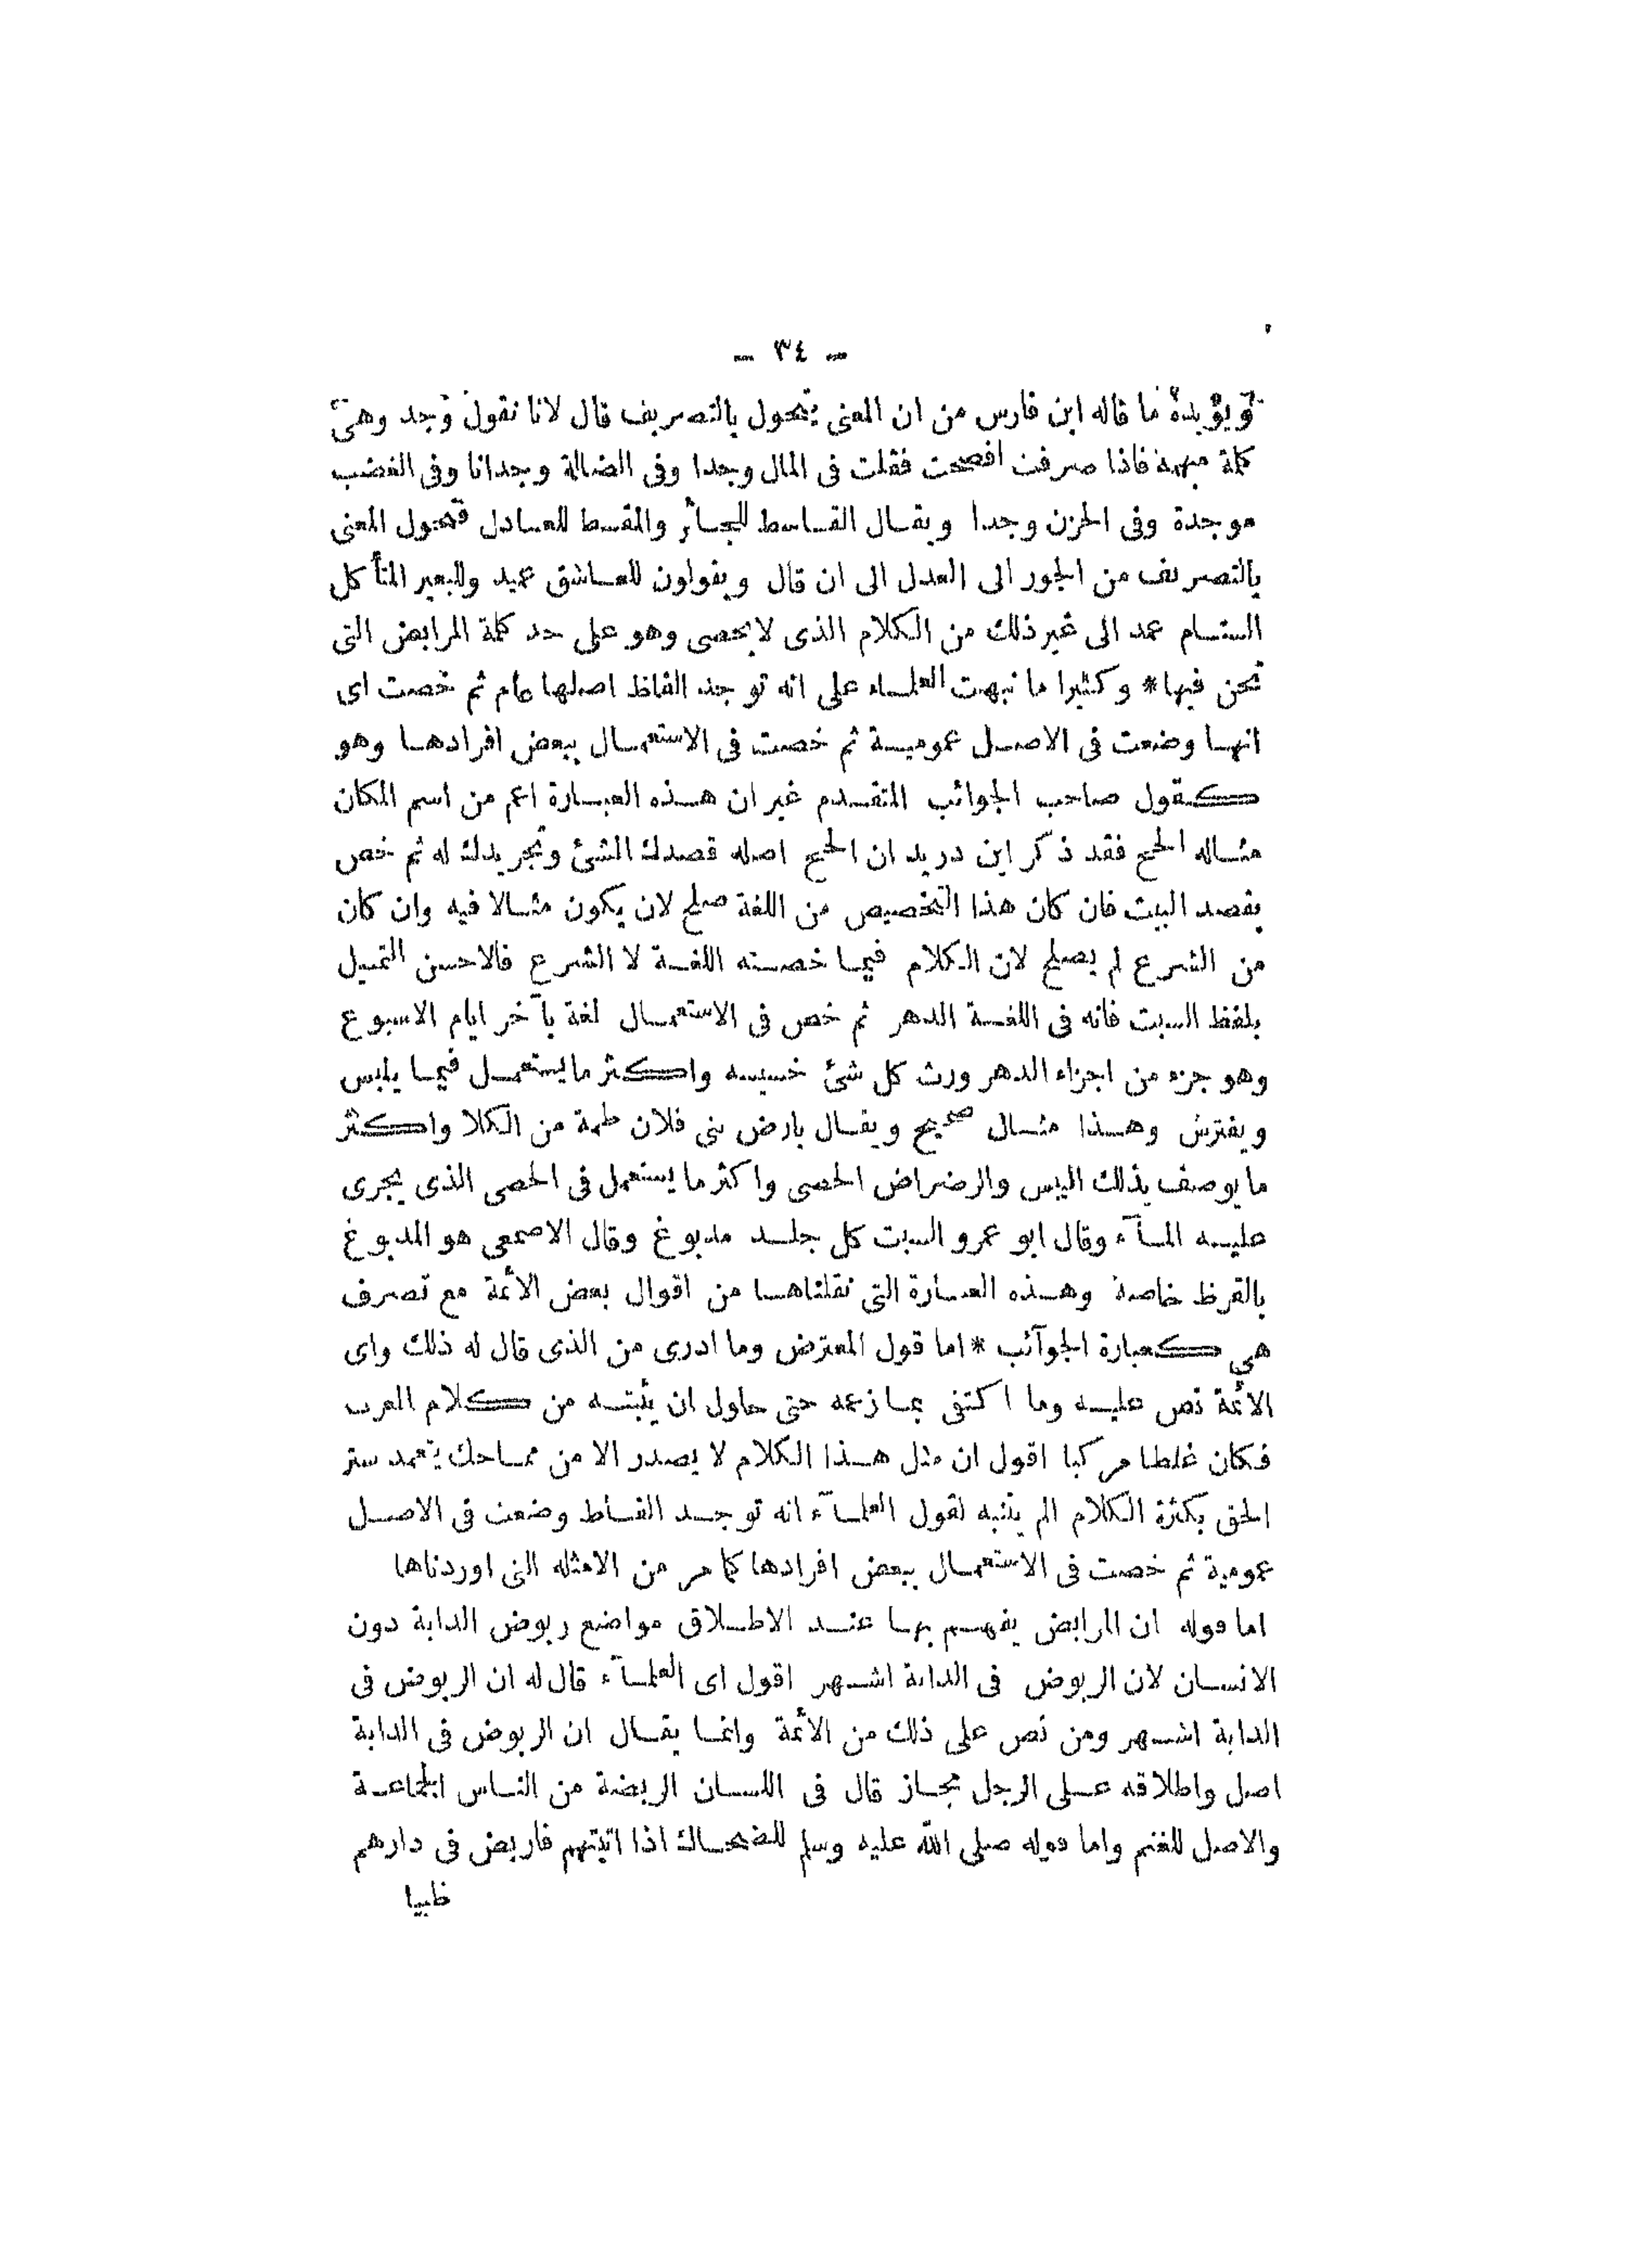 – ٣٤ –
ويؤيده ما قاله ابن فارس من ان المعنى يتحول بالتصريف قال لانا نقول وجد وهى
كلمة مبهمة فاذا صرفت افصحت فقلت فى المال وجدا وفى الضالة وجدانا وفى الغضب
موجدة وفى الحزن وجدا ويقال القاسط للجائر والمقسط للعادل فتحول المعنى
بالتصريف من الجور الى العدل الى ان قال ويقولون للعاشق عميد وللبعير المتأكل
السنام عمد الى غير ذلك من الكلام الذى لا يحصى وهو على حد كلمة المرابض التى
نحن فيها * وكثيرا ما نبهت العلماء على انه توجد الفاظ اصلها عام ثم خصت اى
انها وضعت فى الاصل عمومية ثم خصت فى الاستعمال ببعض افرادها وهو
كقول صاحب الجوائب المتقدم غير ان هذه العبارة اعم من اسم المكان
مثاله الحج فقد ذكر ابن دريد ان الحج اصله قصدك الشئ وتجريدك له ثم خص
بقصد البيت فان كان هذا التخصيص من اللغة صلح لان يكون مثالا فيه وان كان
من الشرع لم يصلح لان الكلام فيما خصته اللغة لا الشرع فالاحسن التمثيل
بلفظ السبت فانه فى اللغة الدهر ثم خص فى الاستعمال لغة بآخر ايام الاسبوع
وهو جزء من اجزاء الدهر ورث كل شئ خسيسه واكثر ما يستعمل فيما يلبس
ويفترش وهذا مثال صحيح ويقال بارض بنى فلان طمة من الكلا واكثر
ما يوصف بذلك اليبس والرضراض الحصى واكثر ما يستعمل فى الحصى الذى يجرى
عليه المآء وقال ابو عمرو السبت كل جلد مدبوغ وقال الاصمعى هو المدبوغ
بالقرظ خاصة وهذه العبارة التى نقلناها من اقوال بعض الائمة مع تصرف
هى كعبارة الجوآئب * اما قول المعترض وما ادرى من الذى قال له ذلك واى
الائمة نص عليه وما اكتفى بما زعمه حتى حاول ان يثبته من كلام العرب
فكان غلطا مركبا اقول ان مثل هذا الكلام لا يصدر الا من مماحك يتعمد ستر
الحق بكثرة الكلام الم يتنبه لقول العلمآء انه توجد الفاظ وضعت فى الاصل
عمومية ثم خصت فى الاستعمال ببعض افرادها كما مر من الامثله التى اوردناها
اما قوله ان المرابض يفهم بها عند الاطلاق مواضع ربوض الدابة دون
الانسان لان الربوض فى الدابة اشهر اقول اى العلمآء قال له ان الربوض فى
الدابة اشهر ومن نص على ذلك من الائمة وانما يقال ان الربوض فى الدابة
اصل واطلاقه على الرجل مجاز قال فى اللسان الربضة من الناس الجماعة
والاصل للغنم واما قوله صلى الله عليه وسلم للضحاك اذا اتيتهم فاربض فى دارهم
ظبيا